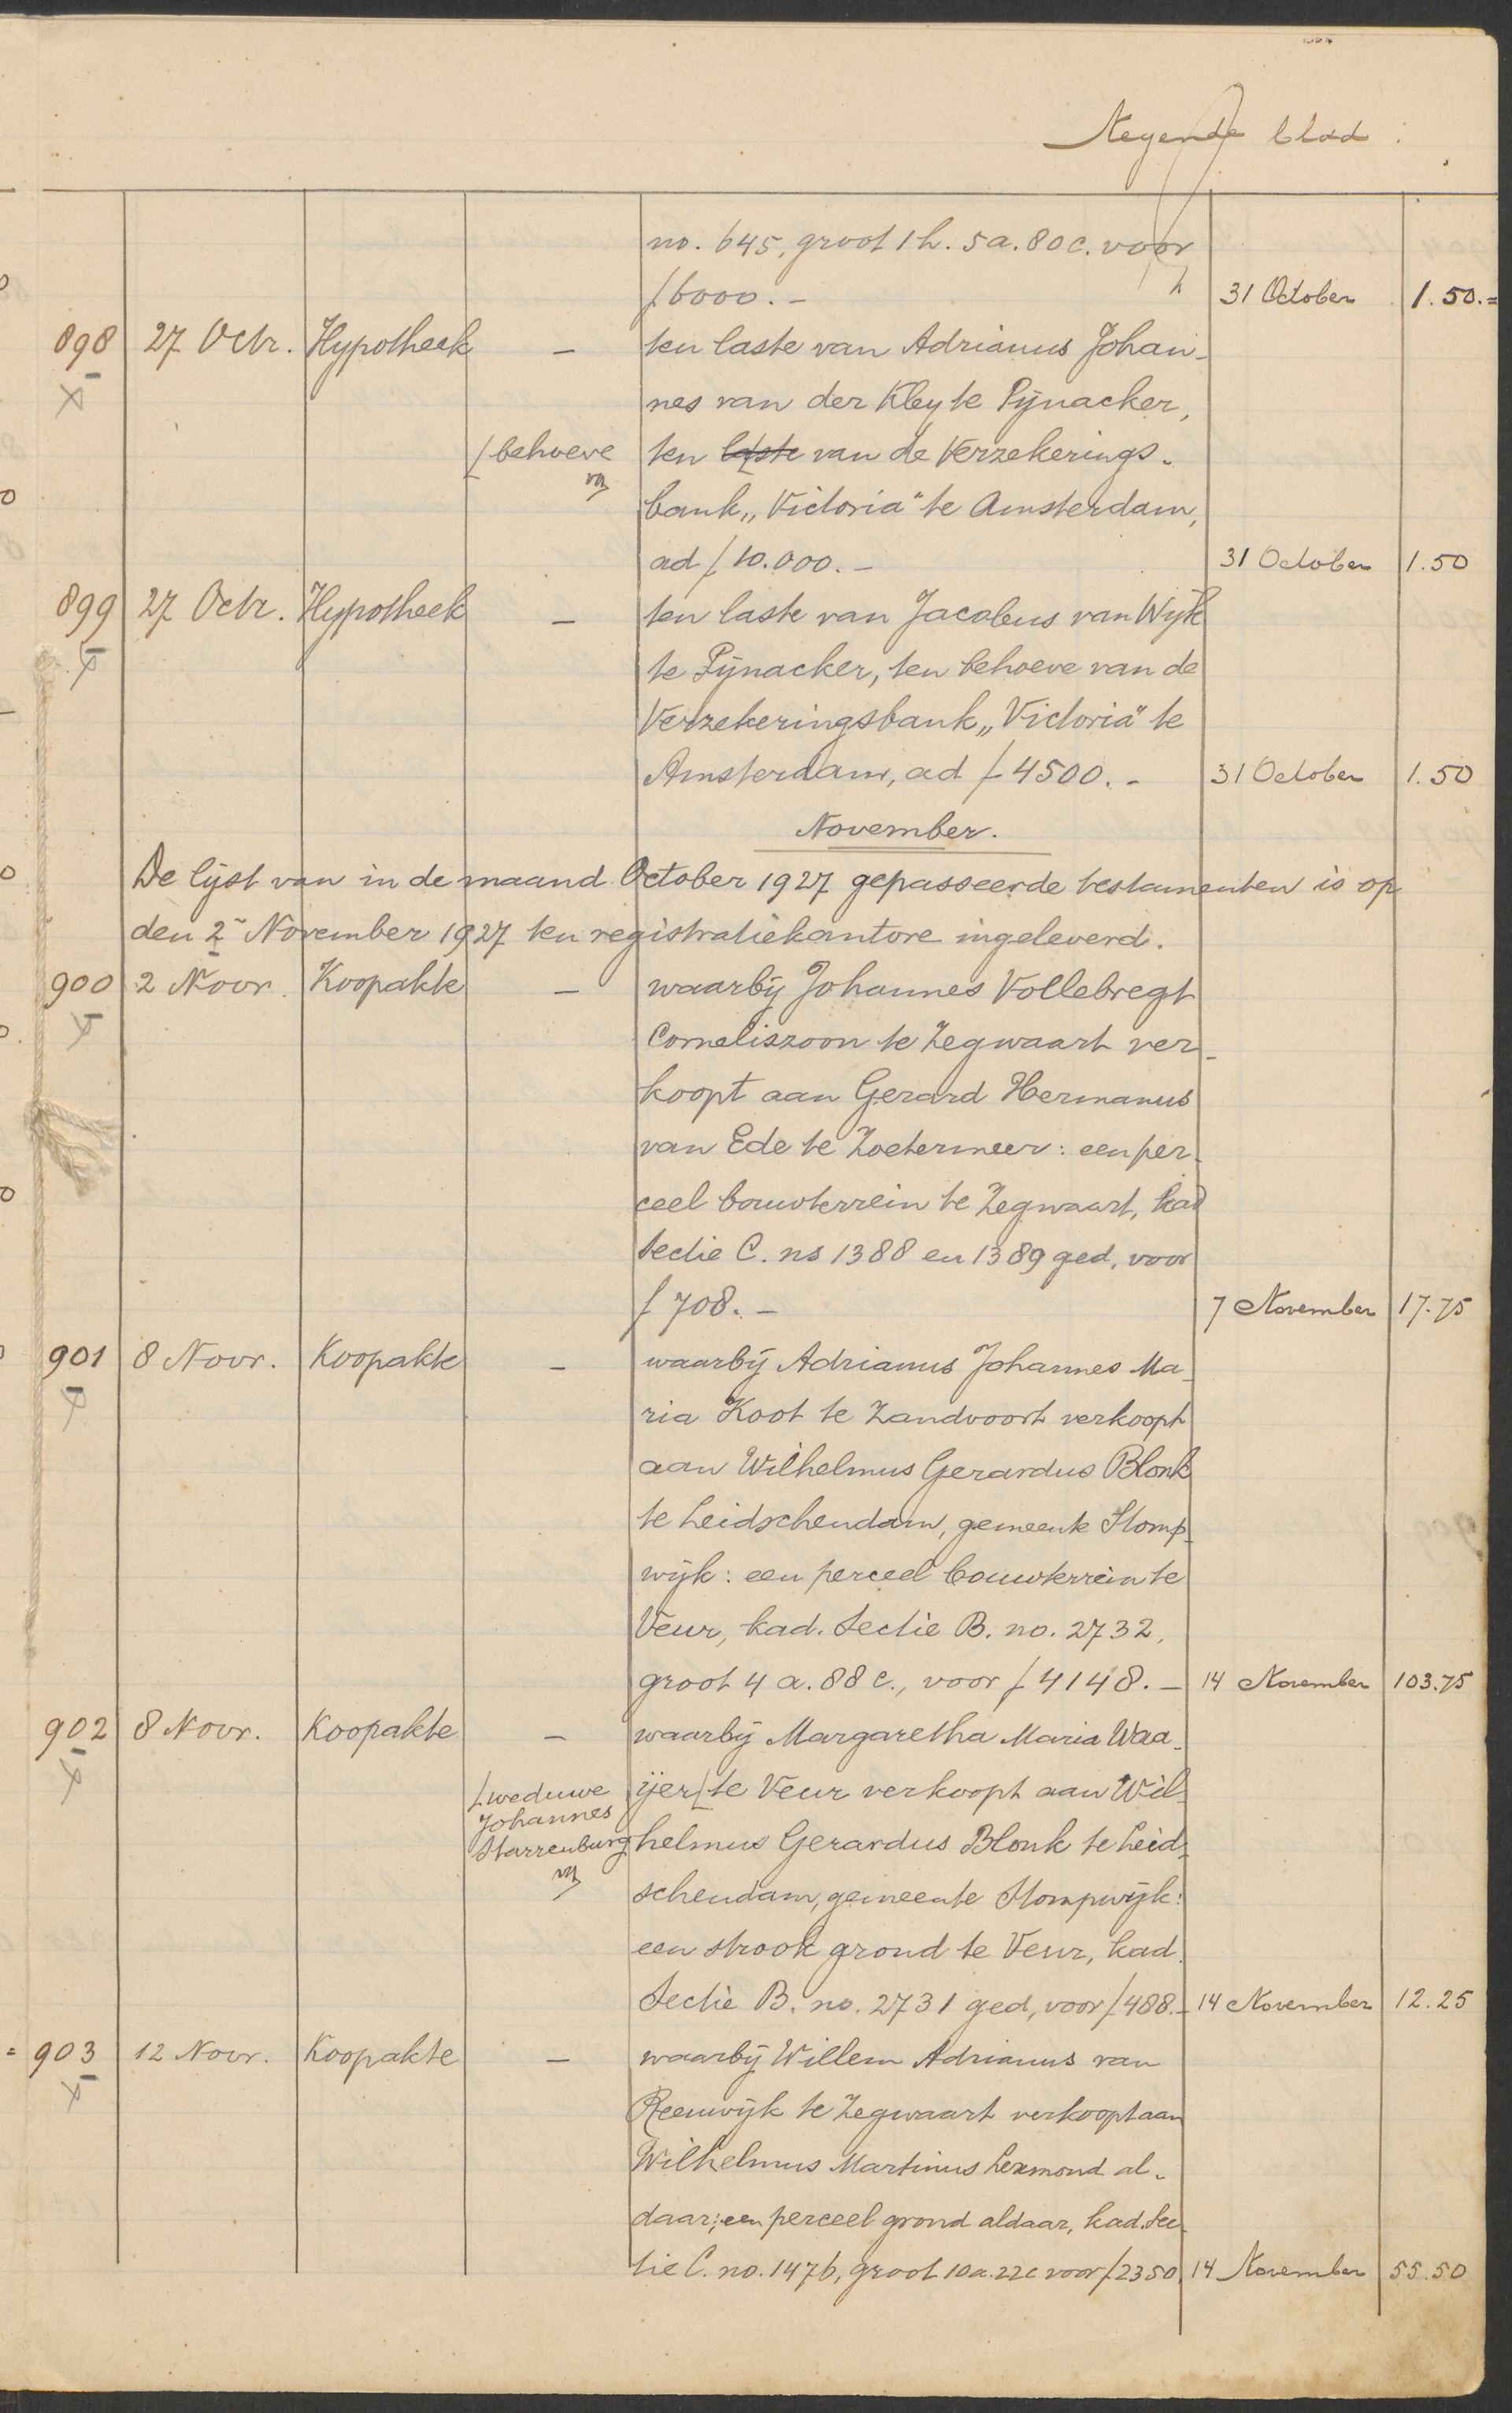 Negende blad.
no. 645, groot 1 h. 5 a. 80 c. voor
f 6000.- 31 October 1.50.=
898 27 Octr. Hypotheek - ten laste van Adrianus Johan-
nes van der Kley te Pijnacker,
⌊behoeve ten ~~laste~~ van de Verzekerings-
bank „Victoria" te Amsterdam,
ad f 10.000.- 31 October 1.50
899 27 Octr. Hypotheek - ten laste van Jacobus van Wijk
te Pijnacker, ten behoeve van de
Verzekeringsbank „Victoria" te
Amsterdam, ad f 4500.- 31 October 1.50
November.
De lijst van in de maand October 1927 gepasseerde testamenten is op
den 2n November 1927 ten registratiekantore ingeleverd.
900 2 Novr. Koopakte - waarbij Johannes Vollebregt
Corneliszoon te Zegwaart ver-
koopt aan Gerard Hermanus
van Ede te Zoetermeer: een per-
ceel bouwterrein te Zegwaart, kad
Sectie C. ns 1388 en 1389 ged, voor
f 708.- 7 November 17.75
901 8 Novr. Koopakte - waarbij Adrianus Johannes Ma-
ria Koot te Zandvoort verkoopt
aan Wilhelmus Gerardus Blonk
te Leidschendam, gemeente Stomp-
wijk: een perceel bouwterrein te
Veur, kad. Sectie B. no. 2732,
groot 4 a. 88 c., voor f 4148.- 14 November 103.75
902 8 Novr. Koopakte - waarbij Margaretha Maria Waa-
ijer⌊ te Veur verkoopt aan Wil-
⌊weduwe
Johannes
Starrenburg
helmus Gerardus Blonk te Leid-
schendam, gemeente Stompwijk:
een strook grond te Veur, kad.
Sectie B. no. 2731 ged, voor f 488.- 14 November 12.25
= 903 12 Novr. Koopakte - waarbij Willem Adrianus van
Reeuwijk te Zegwaart verkoopt aan
Wilhelmus Martinus Lexmond al-
daar; een perceel grond aldaar, kad. Sec-
tie C. no. 1476, groot 10 a. 22 c voor f 2350. 14 November 55.50